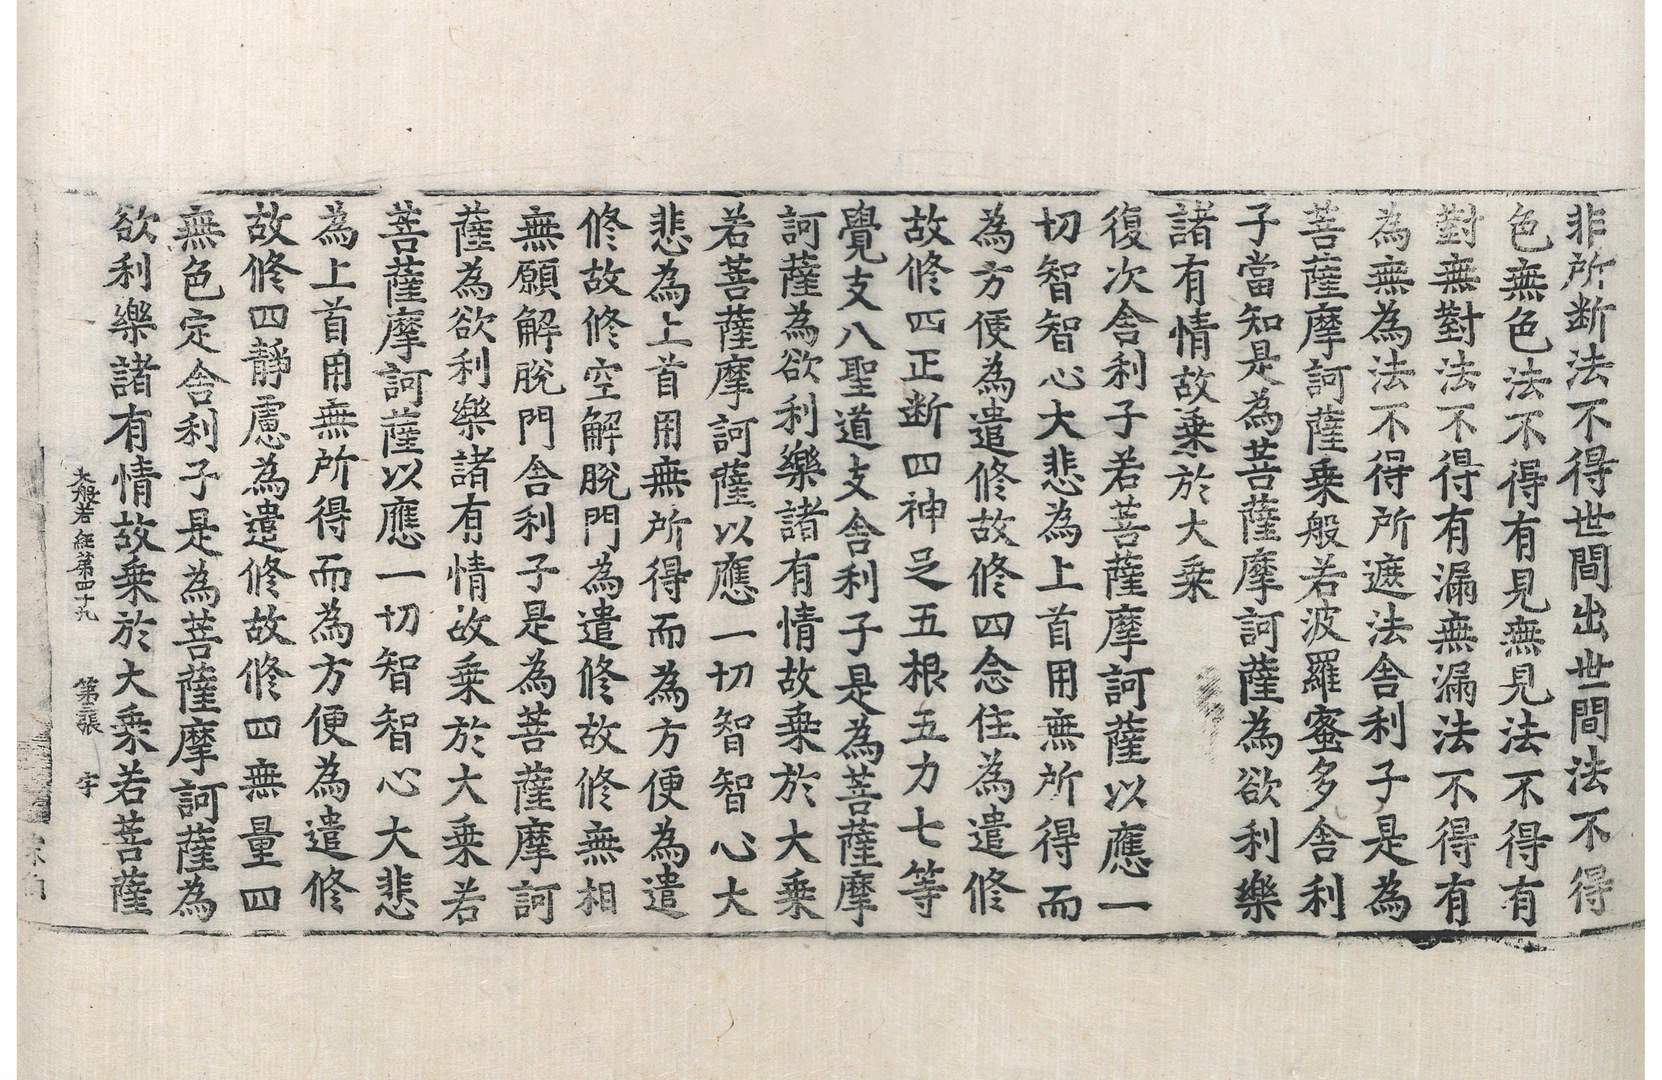 非所断法不得世間出世間法不得
色無色法不得有見無見法不得有
對無對法不得有漏無漏法不得有
為無為法不得所遮法舍利子是為
菩薩摩訶薩乗般若波羅蜜多舍利
子當知是為菩薩摩訶薩為欲利樂
諸有情故乗於大乗
復次舍利子若菩薩摩訶薩以應一
切智智心大悲為上首用無所得而
為方便為遣修故修四念住為遣修
故修四正断四神足五根五力七等
覺支八聖道支舍利子是為菩薩摩
訶薩為欲利樂諸有情故乗於大乗
若菩薩摩訶薩以應一切智智心大
悲為上首用無所得而為方便為遣
修故修空解脫門為遣修故修無相
無願解脫門舍利子是為菩薩摩訶
薩為欲利樂諸有情故乗於大乗若
菩薩摩訶薩以應一切智智心大悲
為上首用無所得而為方便為遣修
故修四靜慮為遣修故修四無量四
無色定舍利子是為菩薩摩訶薩為
欲利樂諸有情故乗於大乗若菩薩
大般若経第四十九 第三張 宇